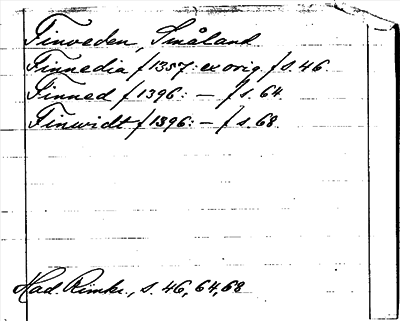 Finveden, Småland
Finnedia f 1357: ex orig. f s. 46.
Finned f 1396: — f s. 64.
Finwidt f 1396: — f s. 68.
Had. Rimkr., s. 46, 64, 68